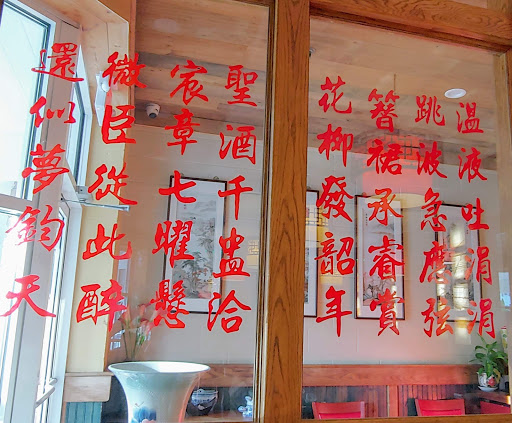 温液吐涓涓
跳波急應弦
簪裾承睿賞
花柳發韶年
聖酒千盅洽
宸章七曜懸
微臣從此醉
還似夢鈞天